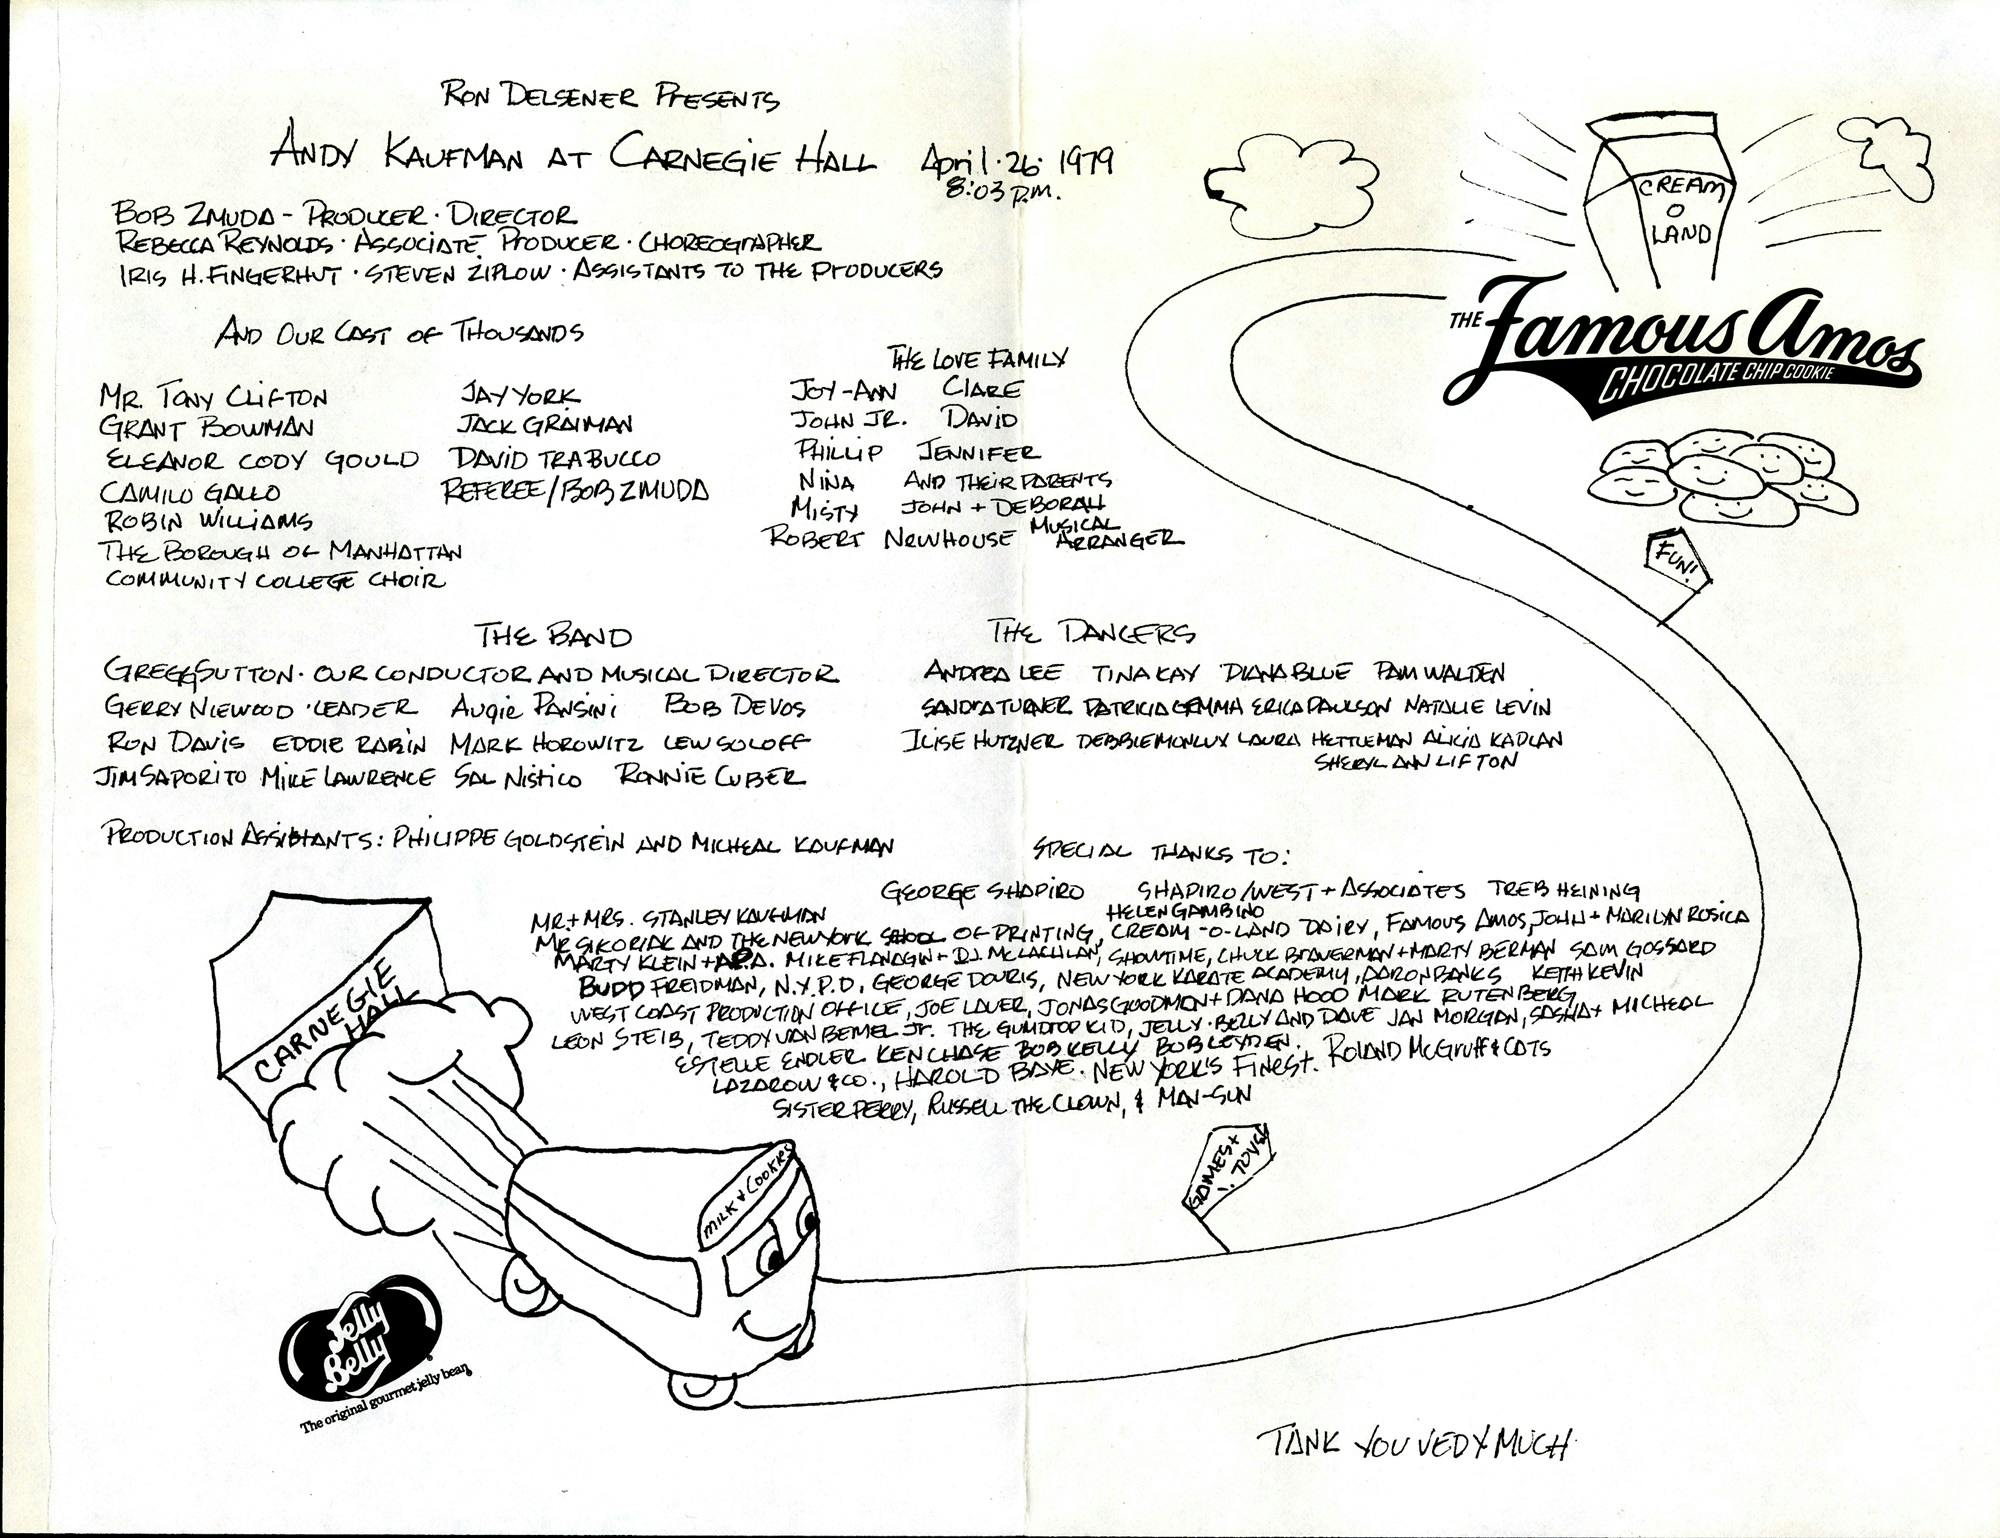 RON DELSENER PRESENTS
ANDY KAUFMAN AT CARNEGIE HALL April · 26 · 1979
8:03 P.M.
BOB ZMUDA - PRODUCER · DIRECTOR
REBECCA REYNOLDS · ASSOCIATE PRODUCER · CHOREOGRAPHER
IRIS H. FINGERHUT · STEVEN ZIPLOW · ASSISTANTS TO THE PRODUCERS
AND OUR CAST OF THOUSANDS
MR. TONY CLIFTON JAY YORK
GRANT BOWMAN JACK GRAIMAN
ELEANOR CODY GOULD DAVID TRABUCCO
CAMILO GALLO REFEREE/BOB ZMUDA
ROBIN WILLIAMS
THE BOROUGH OF MANHATTAN
COMMUNITY COLLEGE CHOIR
THE LOVE FAMILY
JOY-ANN CLARE
JOHN JR. DAVID
PHILLIP JENNIFER
NINA AND THEIR PARENTS
MISTY JOHN + DEBORAH
ROBERT NEWHOUSE MUSICAL ARRANGER
THE BAND
GREGG SUTTON · OUR CONDUCTOR AND MUSICAL DIRECTOR
GERRY NIEWOOD · LEADER AUGIE PANSINI BOB DEVOS
RON DAVIS EDDIE RABIN MARK HOROWITZ LEW SOLOFF
JIM SAPORITO MIKE LAWRENCE SAL NISTICO RONNIE CUBER
THE DANCERS
ANDREA LEE TINA KAY DIANA BLUE PAM WALDEN
SANDRA TURNER PATRICIA GEMMA ERICA PAULSON NATALIE LEVIN
ILISE HUTZNER DEBBIE MONLUX LAURA HETTLEMAN ALICIA KAPLAN
SHERYL ANN LIFTON
PRODUCTION ASSISTANTS: PHILIPPE GOLDSTEIN AND MICHEAL KAUFMAN
SPECIAL THANKS TO:
GEORGE SHAPIRO SHAPIRO/WEST + ASSOCIATES TREB HEINING
MR. + MRS. STANLEY KAUFMAN HELEN GAMBINO
MR SIKORIAK AND THE NEW YORK SCHOOL OF PRINTING, CREAM-O-LAND DAIRY, FAMOUS AMOS, JOHN + MARILYN ROSICA
MARTY KLEIN + A.P.A. MIKE FLANAGIN + D.J. MCLACHLAN, SHOWTIME, CHUCK BRAVERMAN + MARTY BERMAN SAM GOSSARD
BUDD FREIDMAN, N.Y.P.D, GEORGE DOURIS, NEW YORK KARATE ACADEMY, AARON BANKS KEITH KEVIN
WEST COAST PRODUCTION OFFICE, JOE LAUER, JONAS GOODMAN + DANA HOOD MARK RUTENBERG
LEON STEIB, TEDDY VAN BEMEL Jr. THE GUMDROP KID, JELLY·BELLY AND DAVE JAN MORGAN, SASHA + MICHEAL
ESTELLE ENDLER KEN CHASE BOB KELLY BOB LEYDEN.
LAZAROW & CO., HAROLD BAYE. NEW YORK'S FINEST. ROLAND McGRUFF & CATS
SISTER PERRY, RUSSELL THE CLOWN, & MAI-SUN
CREAM
O
LAND
THE Famous Amos
CHOCOLATE CHIP COOKIE
FUN!
GAMES +
TOYS!
CARNEGIE
HALL
MILK & COOKIES
Jelly
Belly
The original gourmet jelly bean
TANK YOU VEDY MUCH